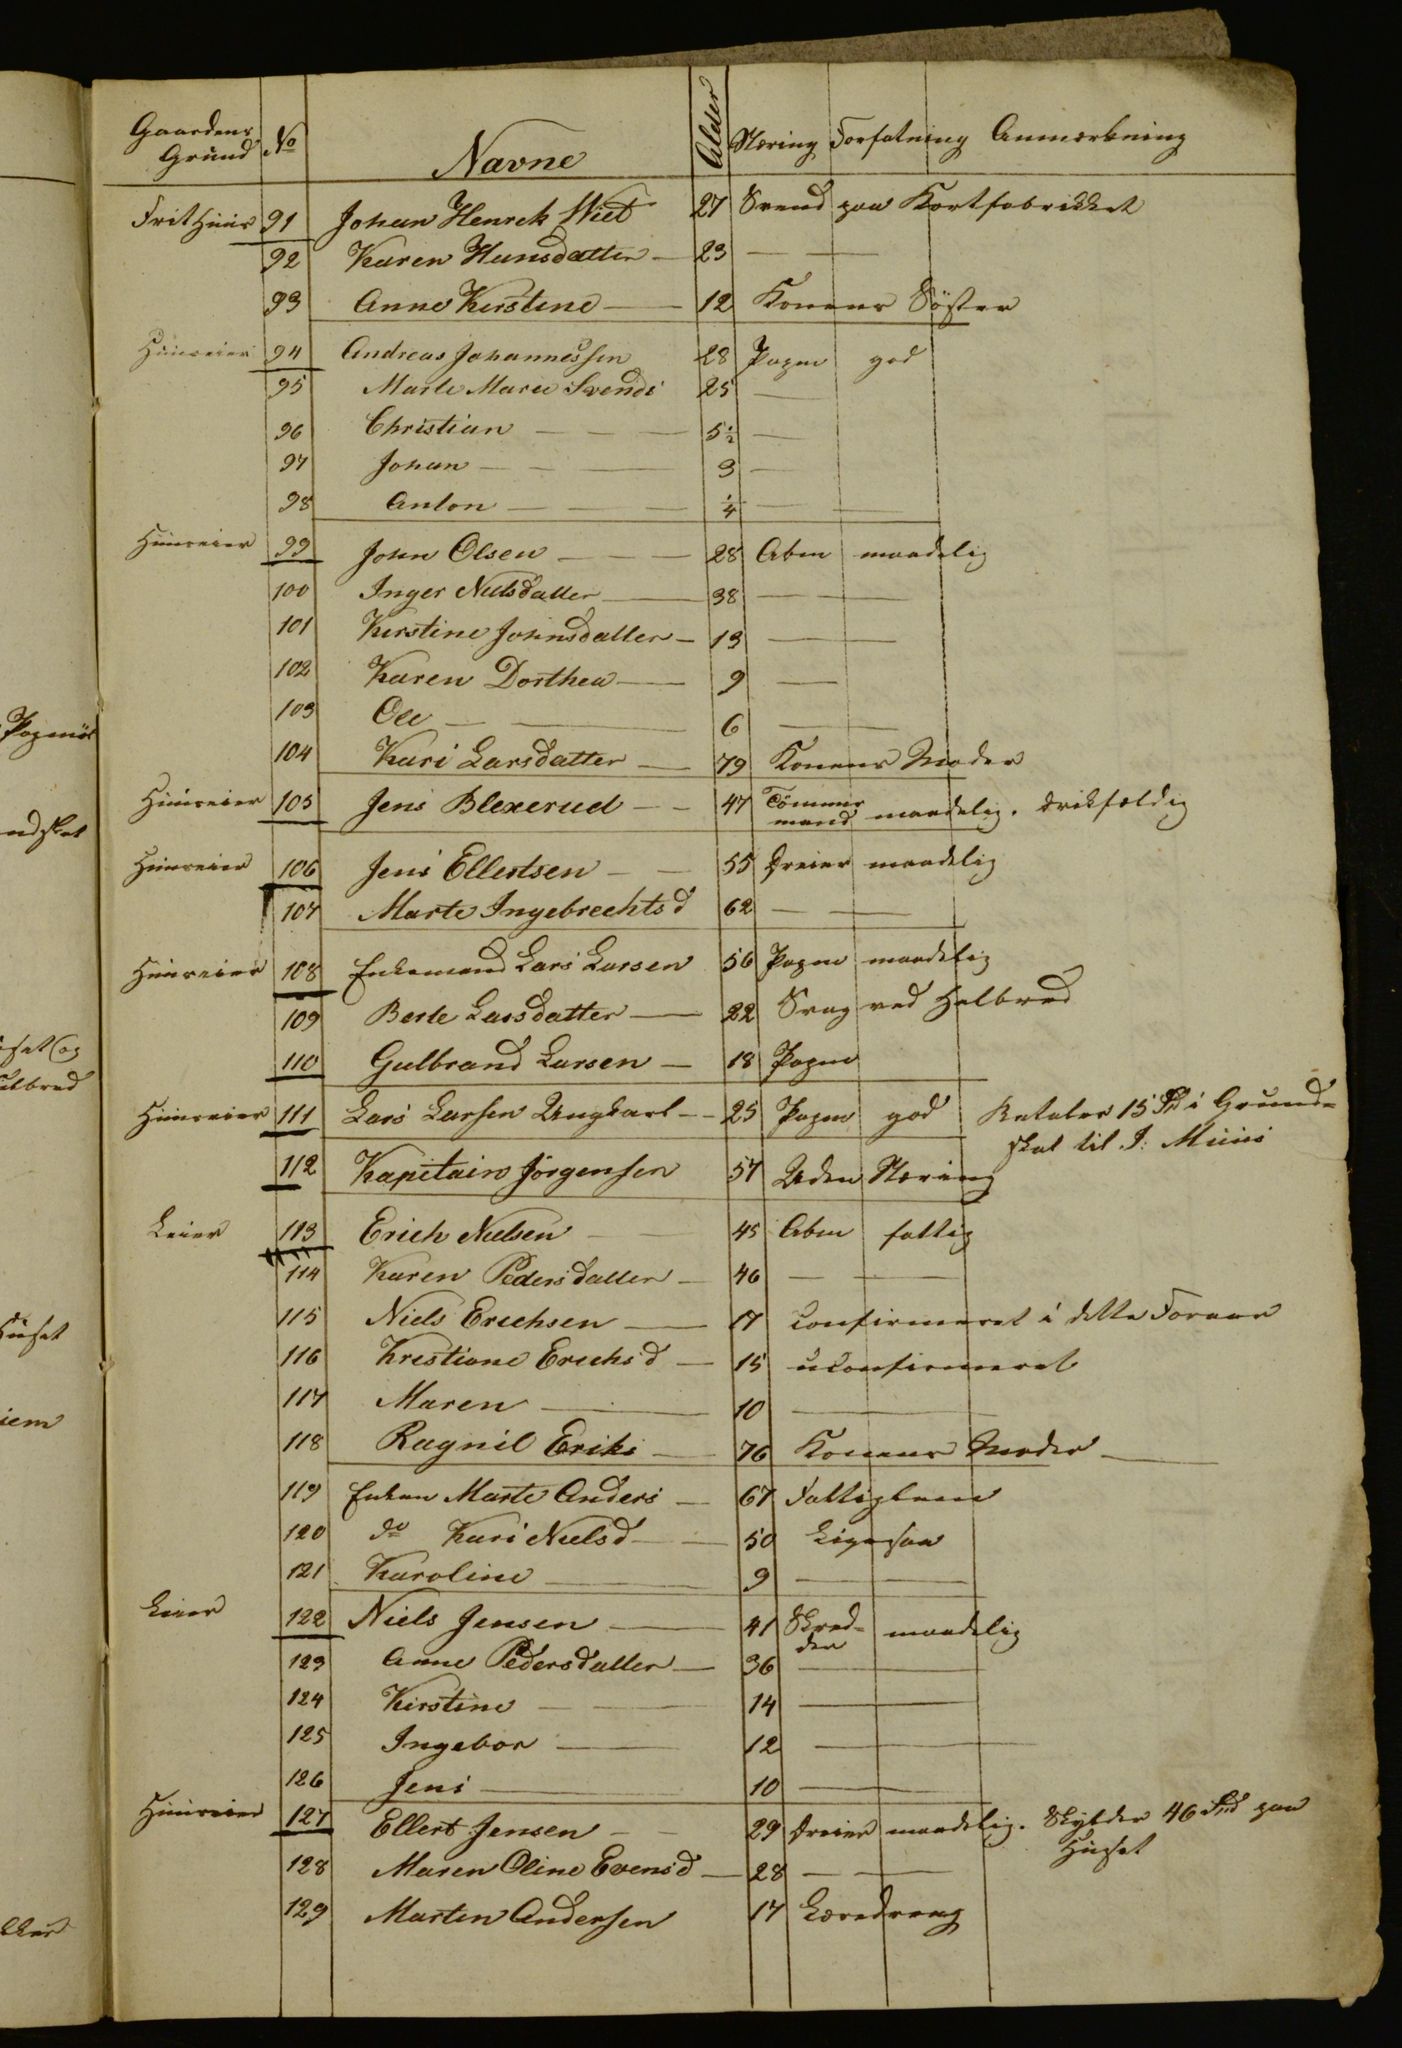 Gaardens Grund | No | Navne | Alder | Næring | Forfatning | Anmærkning
Frit Huus | 91 | Johan Henrek Wiet | 27 | Svend paa Kortfabrikket
92 | Karen Hansdatter — | 23 | — | —
93 | Anne Kirstine — | 12 | Konens Söster
Huuseier | 94 | Andreas Johannessen | 28 | Pagm | god
95 | Marte Marie Svends | 25 | —
96 | Christian — — — | 5½ | —
97 | Johan — — — | 3 | —
98 | Anton — — — | ¼ | — | —
Huuseier | 99 | John Olsen — — — | 28 | Abm | maadelig
100 | Inger Nielsdatter — | 38 | — | —
101 | Kirstine Johnsdatter — | 13 | — | —
102 | Karen Dorthea — | 9 | —
103 | Ole — — | 6 | — | —
104 | Kari Larsdatter — | 79 | Konens Moder
Huuseier | 105 | Jens Blexerud — — | 47 | Tömmermand | maadelig. | drikfældig
Huuseier | 106 | Jens Ellertsen — — | 55 | Dreier | maadelig
107 | Marte Ingebrechtsd | 62 | — | —
Huuseier | 108 | Enkemand Lars Larsen | 56 | Pagm | maadelig
109 | Berte Larsdatter — | 22 | Svag ved Helbred
110 | Gulbrand Larsen — | 18 | Pagm
Huuseier | 111 | Lars Larsen Ungkarl — | 25 | Pagm | god | Betaler 15 Sk i Grund-
skat til J. Muus
112 | Kapitain Jörgensen | 57 | Uden Næring
Leier | 113 | Erich Nielsen — — | 45 | Abm | fattig
114 | Karen Pedersdatter — | 46 | — | —
115 | Niels Erichsen — | 17 | Confirmeret i dette Foraar
116 | Krestiane Erichsd — | 15 | uconfirmeret
117 | Maren — | 10 | —
118 | Ragnil Eriks — | 76 | Konens Moder —
119 | Enken Marte Anders — | 67 | Fattiglem
120 | do Kari Nielsd — — | 50 | Ligesaa
121 | Karoline — | 9 | — | —
Leier | 122 | Niels Jensen — | 41 | Skredder | maadelig
123 | Anne Pedersdatter — | 36 | — | —
124 | Kirstine — — | 14 | — | —
125 | Ingebor — | 12 | — | —
126 | Jens — | 10 | — | —
Huuseier | 127 | Ellert Jensen — — | 29 | Dreier | maadelig. | Skylder 46 Spd paa
Huset
128 | Maren Oline Evensd — | 28 | — | —
129 | Marten Andersen | 17 | Læredreng